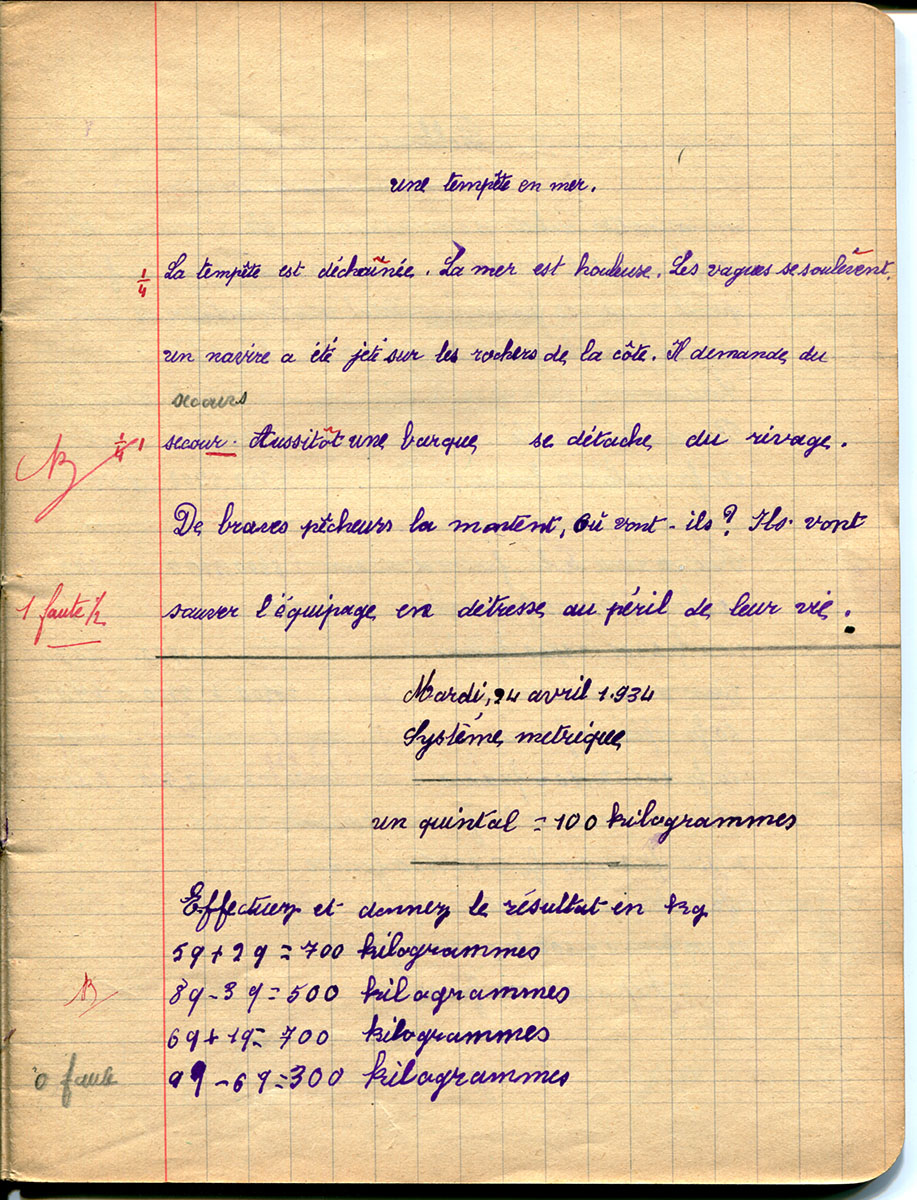 une tempête en mer.
1/4 La tempête est déchaînée. La mer est houleuse. Les vagues se soulèvent.
un navire a été jeté sur les rochers de la côte. Il demande du
secours
B 1/4 1 secour. Aussitôt une barque se détache du rivage.
De braves pêcheurs la montent, Où vont-ils? Ils vont
1 faute 1/2 sauver l'équipage en détresse au péril de leur vie.
Mardi, 24 avril 1.934
Système métrique
un quintal = 100 kilogrammes
Effectuez et donnez le résultat en kg
5q + 2q = 700 kilogrammes
B 8q - 3q = 500 kilogrammes
6q + 1q = 700 kilogrammes
0 faute 9q - 6q = 300 kilogrammes